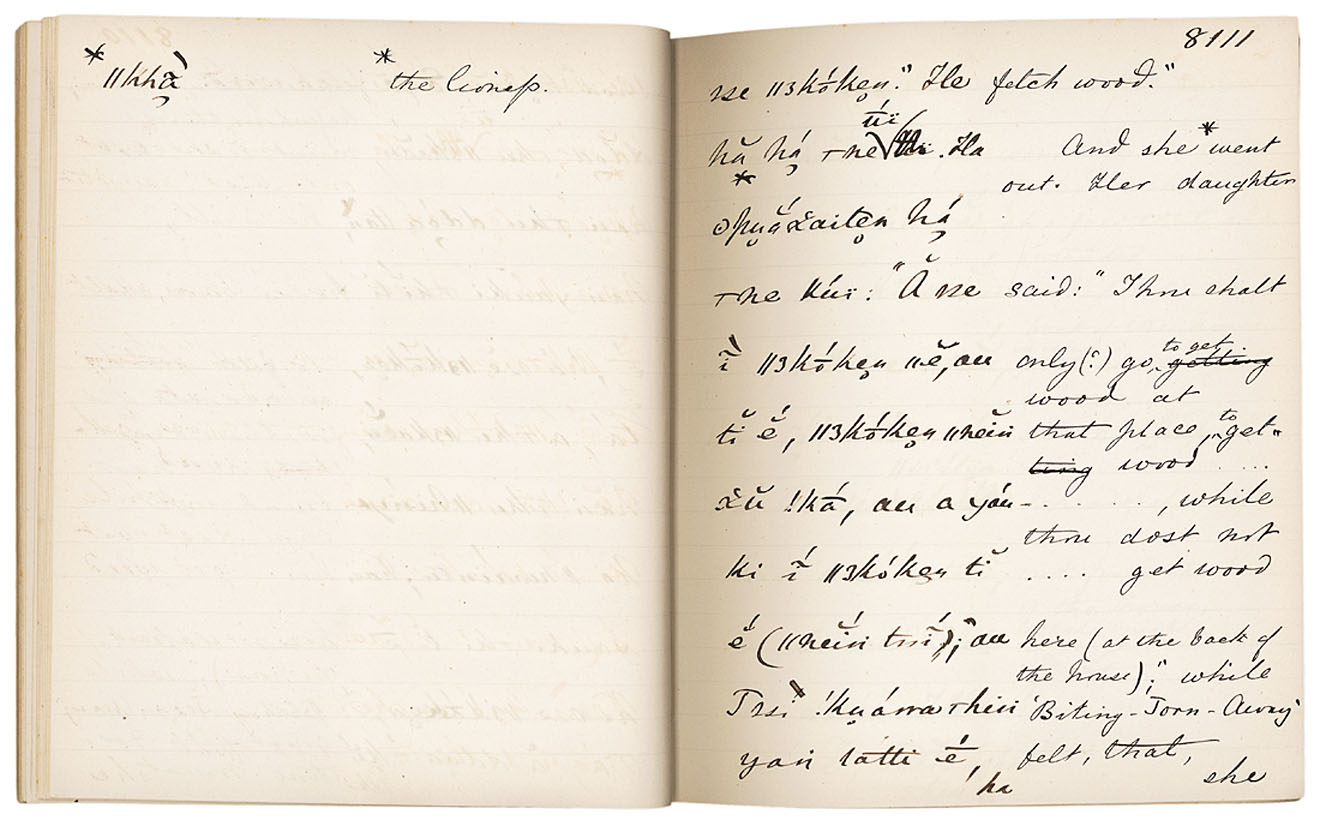 *
ǁkhā̰́ *the lioness.
8111
sse ǁ3kóken̥." He fetch wood."
hă há ⊤ne ū́ï. Ha And she *went
out. Her daughter
*
ʘpuắx̆aiten há
⊤ne kúï: "Ă sse said: "Thou shalt
ī́̆ ǁ3kó́ken̥ ǁĕ, au only(?) go, to get getting
wood at
tĭ é, ǁ3kó́ken̥ ǁneiń that place, to get-
ting wood ....
x̆ŭ !kā́, au a yáu- . . . . . , while
thou dost not
ki ī́ ǁ3kóken̥ tĭ .... get wood
é́ (ǁneiń tsṅ́);" au here (at the back of
the house);" while
Tssĭ !kuárra⊤hiń 'Biting-Torn-Away'
yań tátti é́, ha felt, that,
she